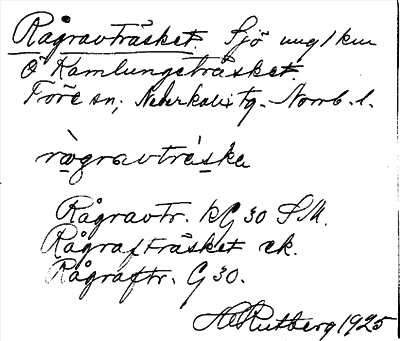 Rågravträsket. Sjö ung 1 km
Ö Kamlungeträsket.
Töre sn, Nederkalix tg. Norrb. l.
rògravträ́ska
Rågravtr. KG 30 SM.
Rågrafträsket ek.
Rågraftr. G 30.
H Rutberg 1925